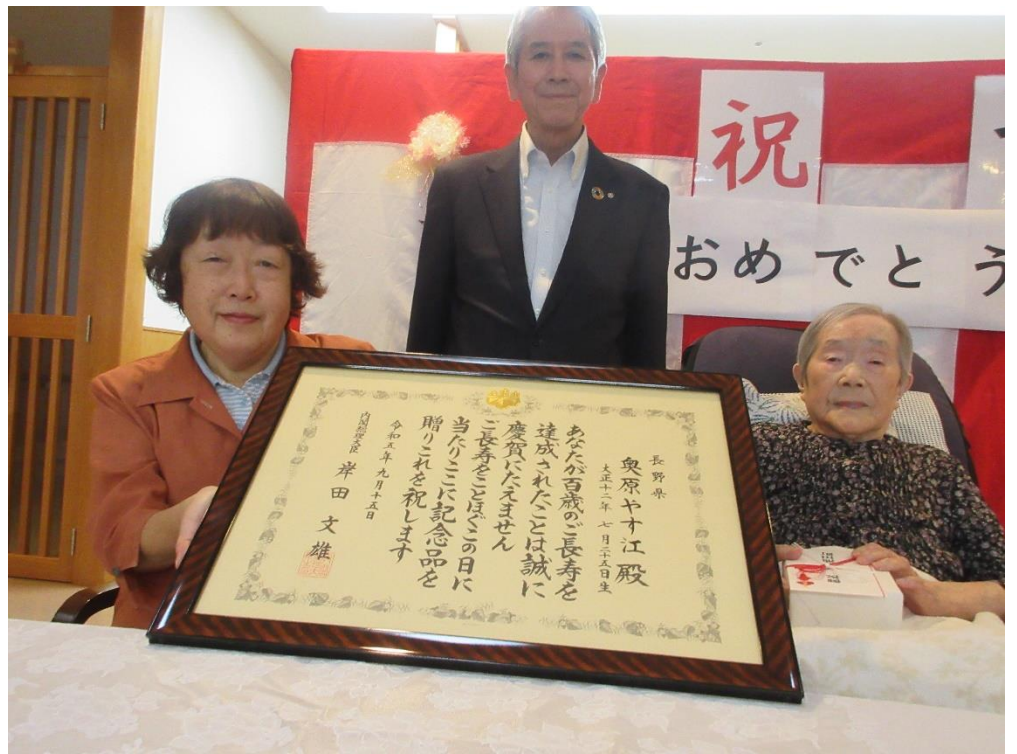 祝
おめでとう
長野県
奥原やす江殿
大正十二年 七月二十五日生
あなたが百歳のご長寿を
達成されたことは誠に
慶賀にたえません
ご長寿をことほぐこの日に
当たりここに記念品を
贈りこれを祝します
令和五年九月十五日
内閣総理大臣 岸田 文雄